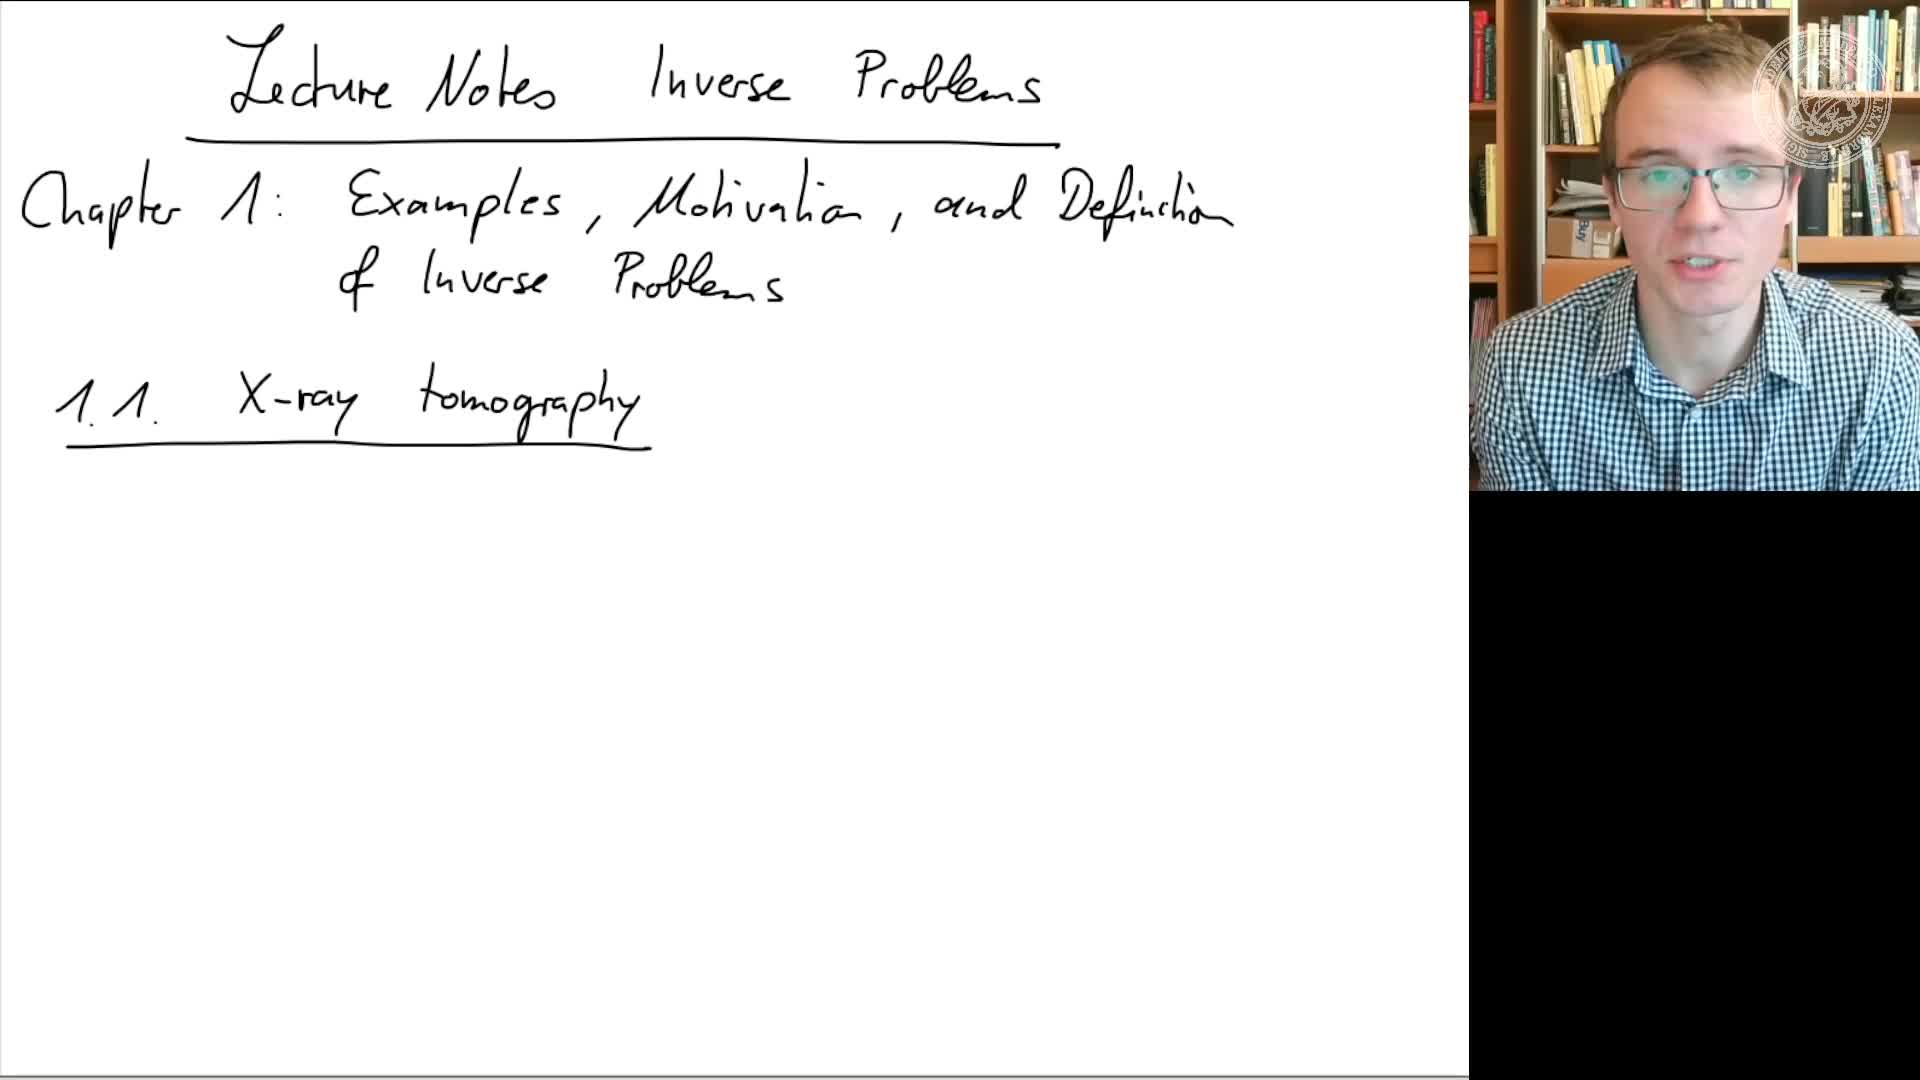 Lecture Notes Inverse Problems
Chapter 1: Examples, Motivation, and Definition
of Inverse Problems
1.1. X-ray tomography
Buy